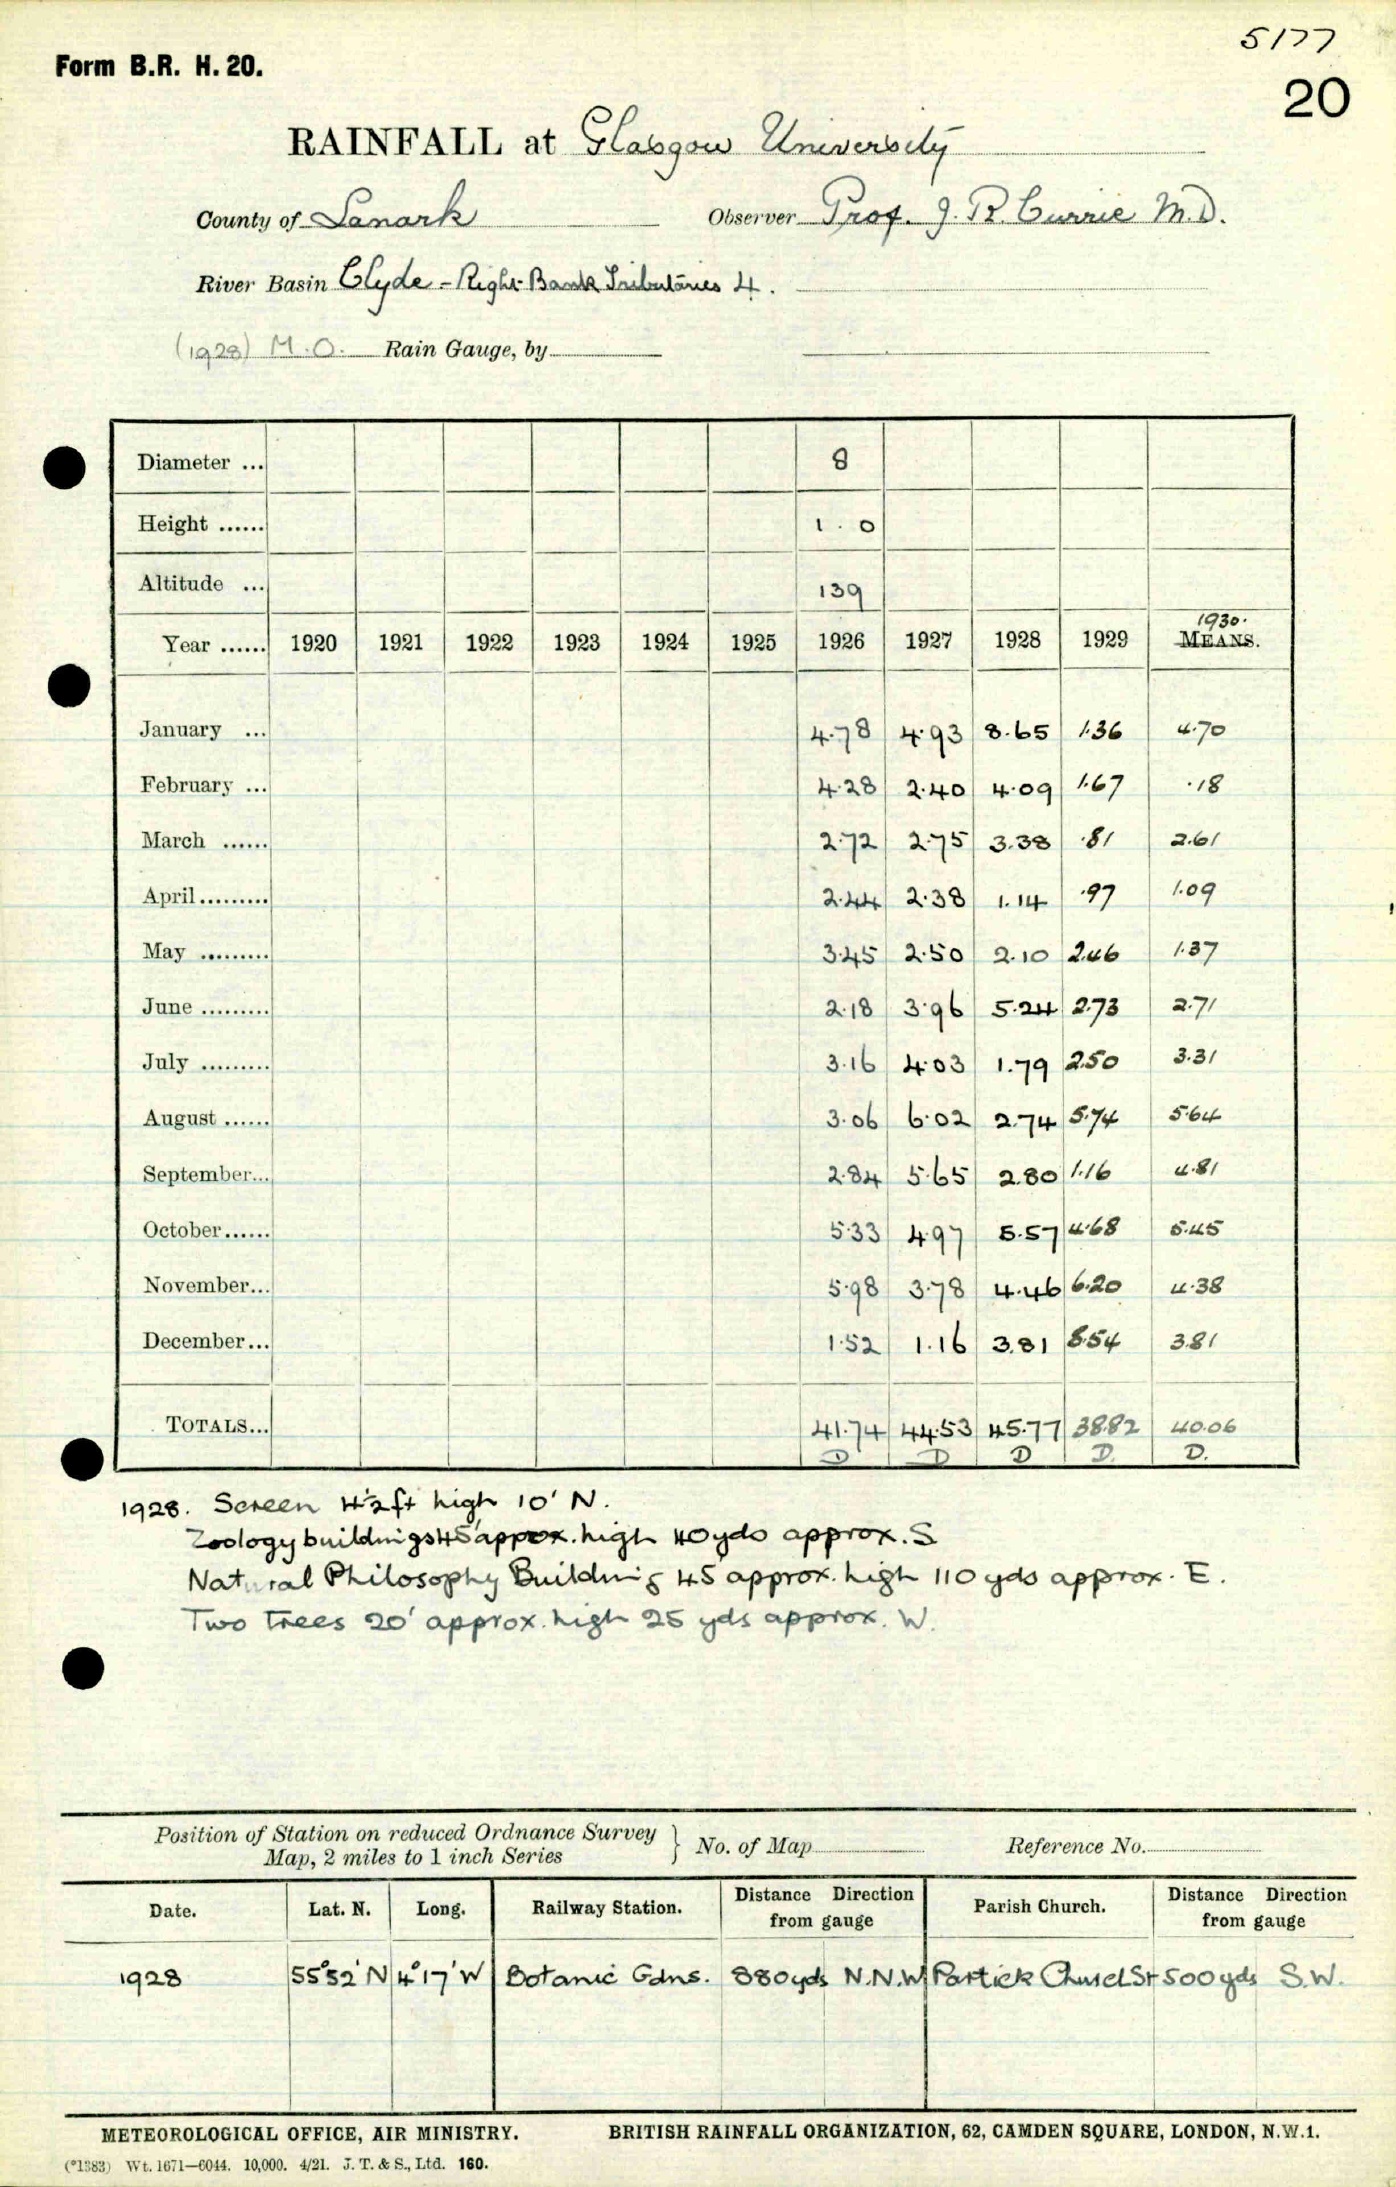 5177
Form B.R. H. 20.
20
RAINFALL at Glasgow University
County of Lanark Observer Prof. J. R. Currie M.D.
River Basin Clyde - Right Bank Tributaries 4.
(1928) M.O. Rain Gauge, by
Diameter ... 8
Height ...... 1 . 0
Altitude ... 139
1930.
Year ...... 1920 1921 1922 1923 1924 1925 1926 1927 1928 1929 MEANS.
January ... 4.78 4.93 8.65 1.36 4.70
February ... 4.28 2.40 4.09 1.67 .18
March ...... 2.72 2.75 3.38 .81 2.61
April......... 2.44 2.38 1.14 .97 1.09
May ......... 3.45 2.50 2.10 2.46 1.37
June ......... 2.18 3.96 5.24 2.73 2.71
July ......... 3.16 4.03 1.79 2.50 3.31
August ...... 3.06 6.02 2.74 5.74 5.64
September... 2.84 5.65 2.80 1.16 4.81
October...... 5.33 4.97 5.57 4.68 5.45
November... 5.98 3.78 4.46 6.20 4.38
December... 1.52 1.16 3.81 8.54 3.81
TOTALS... 41.74 44.53 45.77 38.82 40.06
D D D D. D.
1928. Screen 4½ ft high 10' N.
Zoology buildings 45' approx. high 40 yds approx. S
Natural Philosophy Building 45' approx. high 110 yds approx. E.
Two trees 20' approx. high 25 yds approx. W.
Position of Station on reduced Ordnance Survey
Map, 2 miles to 1 inch Series } No. of Map Reference No.
Date. Lat. N. Long. Railway Station. Distance Direction from gauge Parish Church. Distance Direction from gauge
1928 55°52' N 4°17' W Botanic Gdns. 880 yds N.N.W Partick Church St 500 yds S.W.
METEOROLOGICAL OFFICE, AIR MINISTRY. BRITISH RAINFALL ORGANIZATION, 62, CAMDEN SQUARE, LONDON, N.W.1.
(*1383) Wt. 1671—6044. 10,000. 4/21. J. T. & S., Ltd. 160.